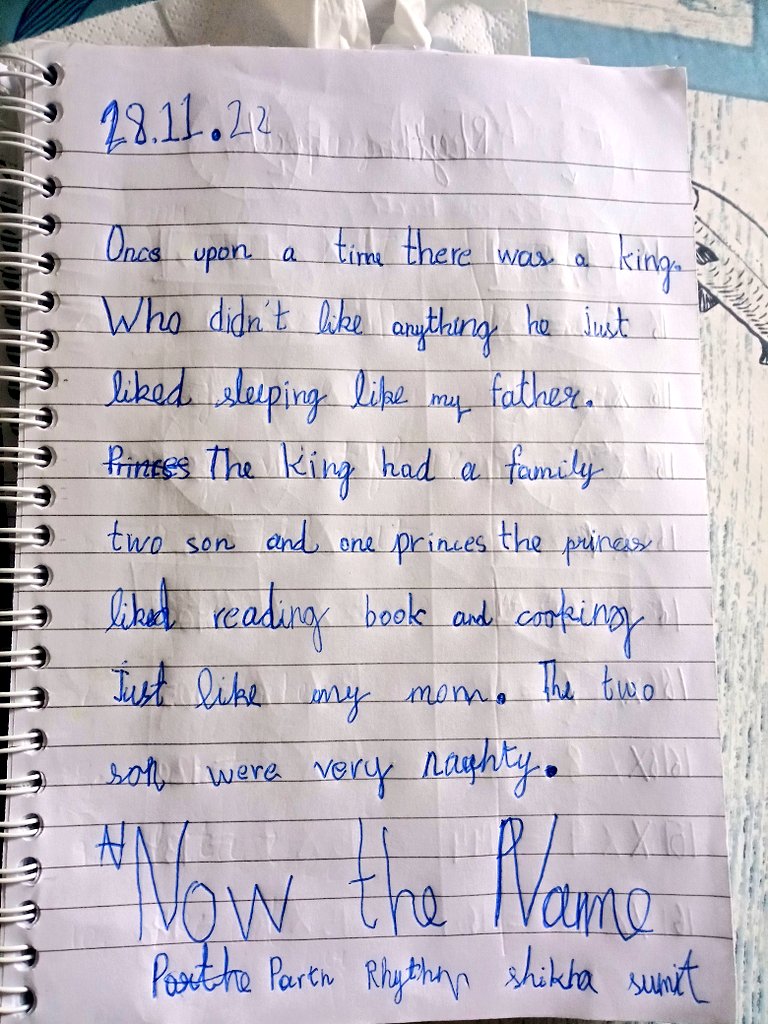 28.11.22
Once upon a time there was a king.
Who didn't like anything he just
liked sleeping like my father.
Princes The king had a family
two son and one princes the princes
liked reading book and cooking
Just like my mom. The two
son were very naghty.
N Now the Name
Parthe Parth Rhythm shikha sumit